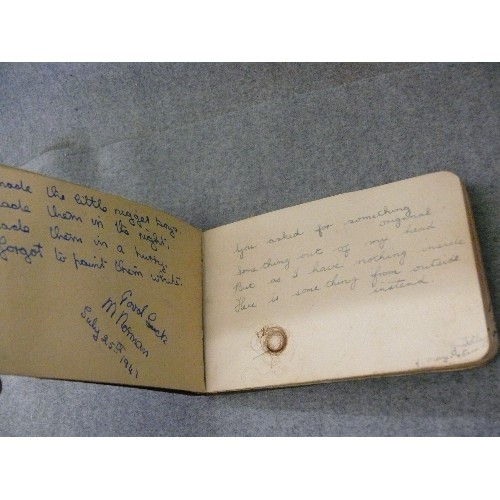 made the little nigger boys
made them in the night.
made them in a hurry
forgot to paint them white.
Good Luck
M Norman
July 25th 1947
You asked for something original
Something out of my head
But as I have nothing inside
Here is something from outside
instead.